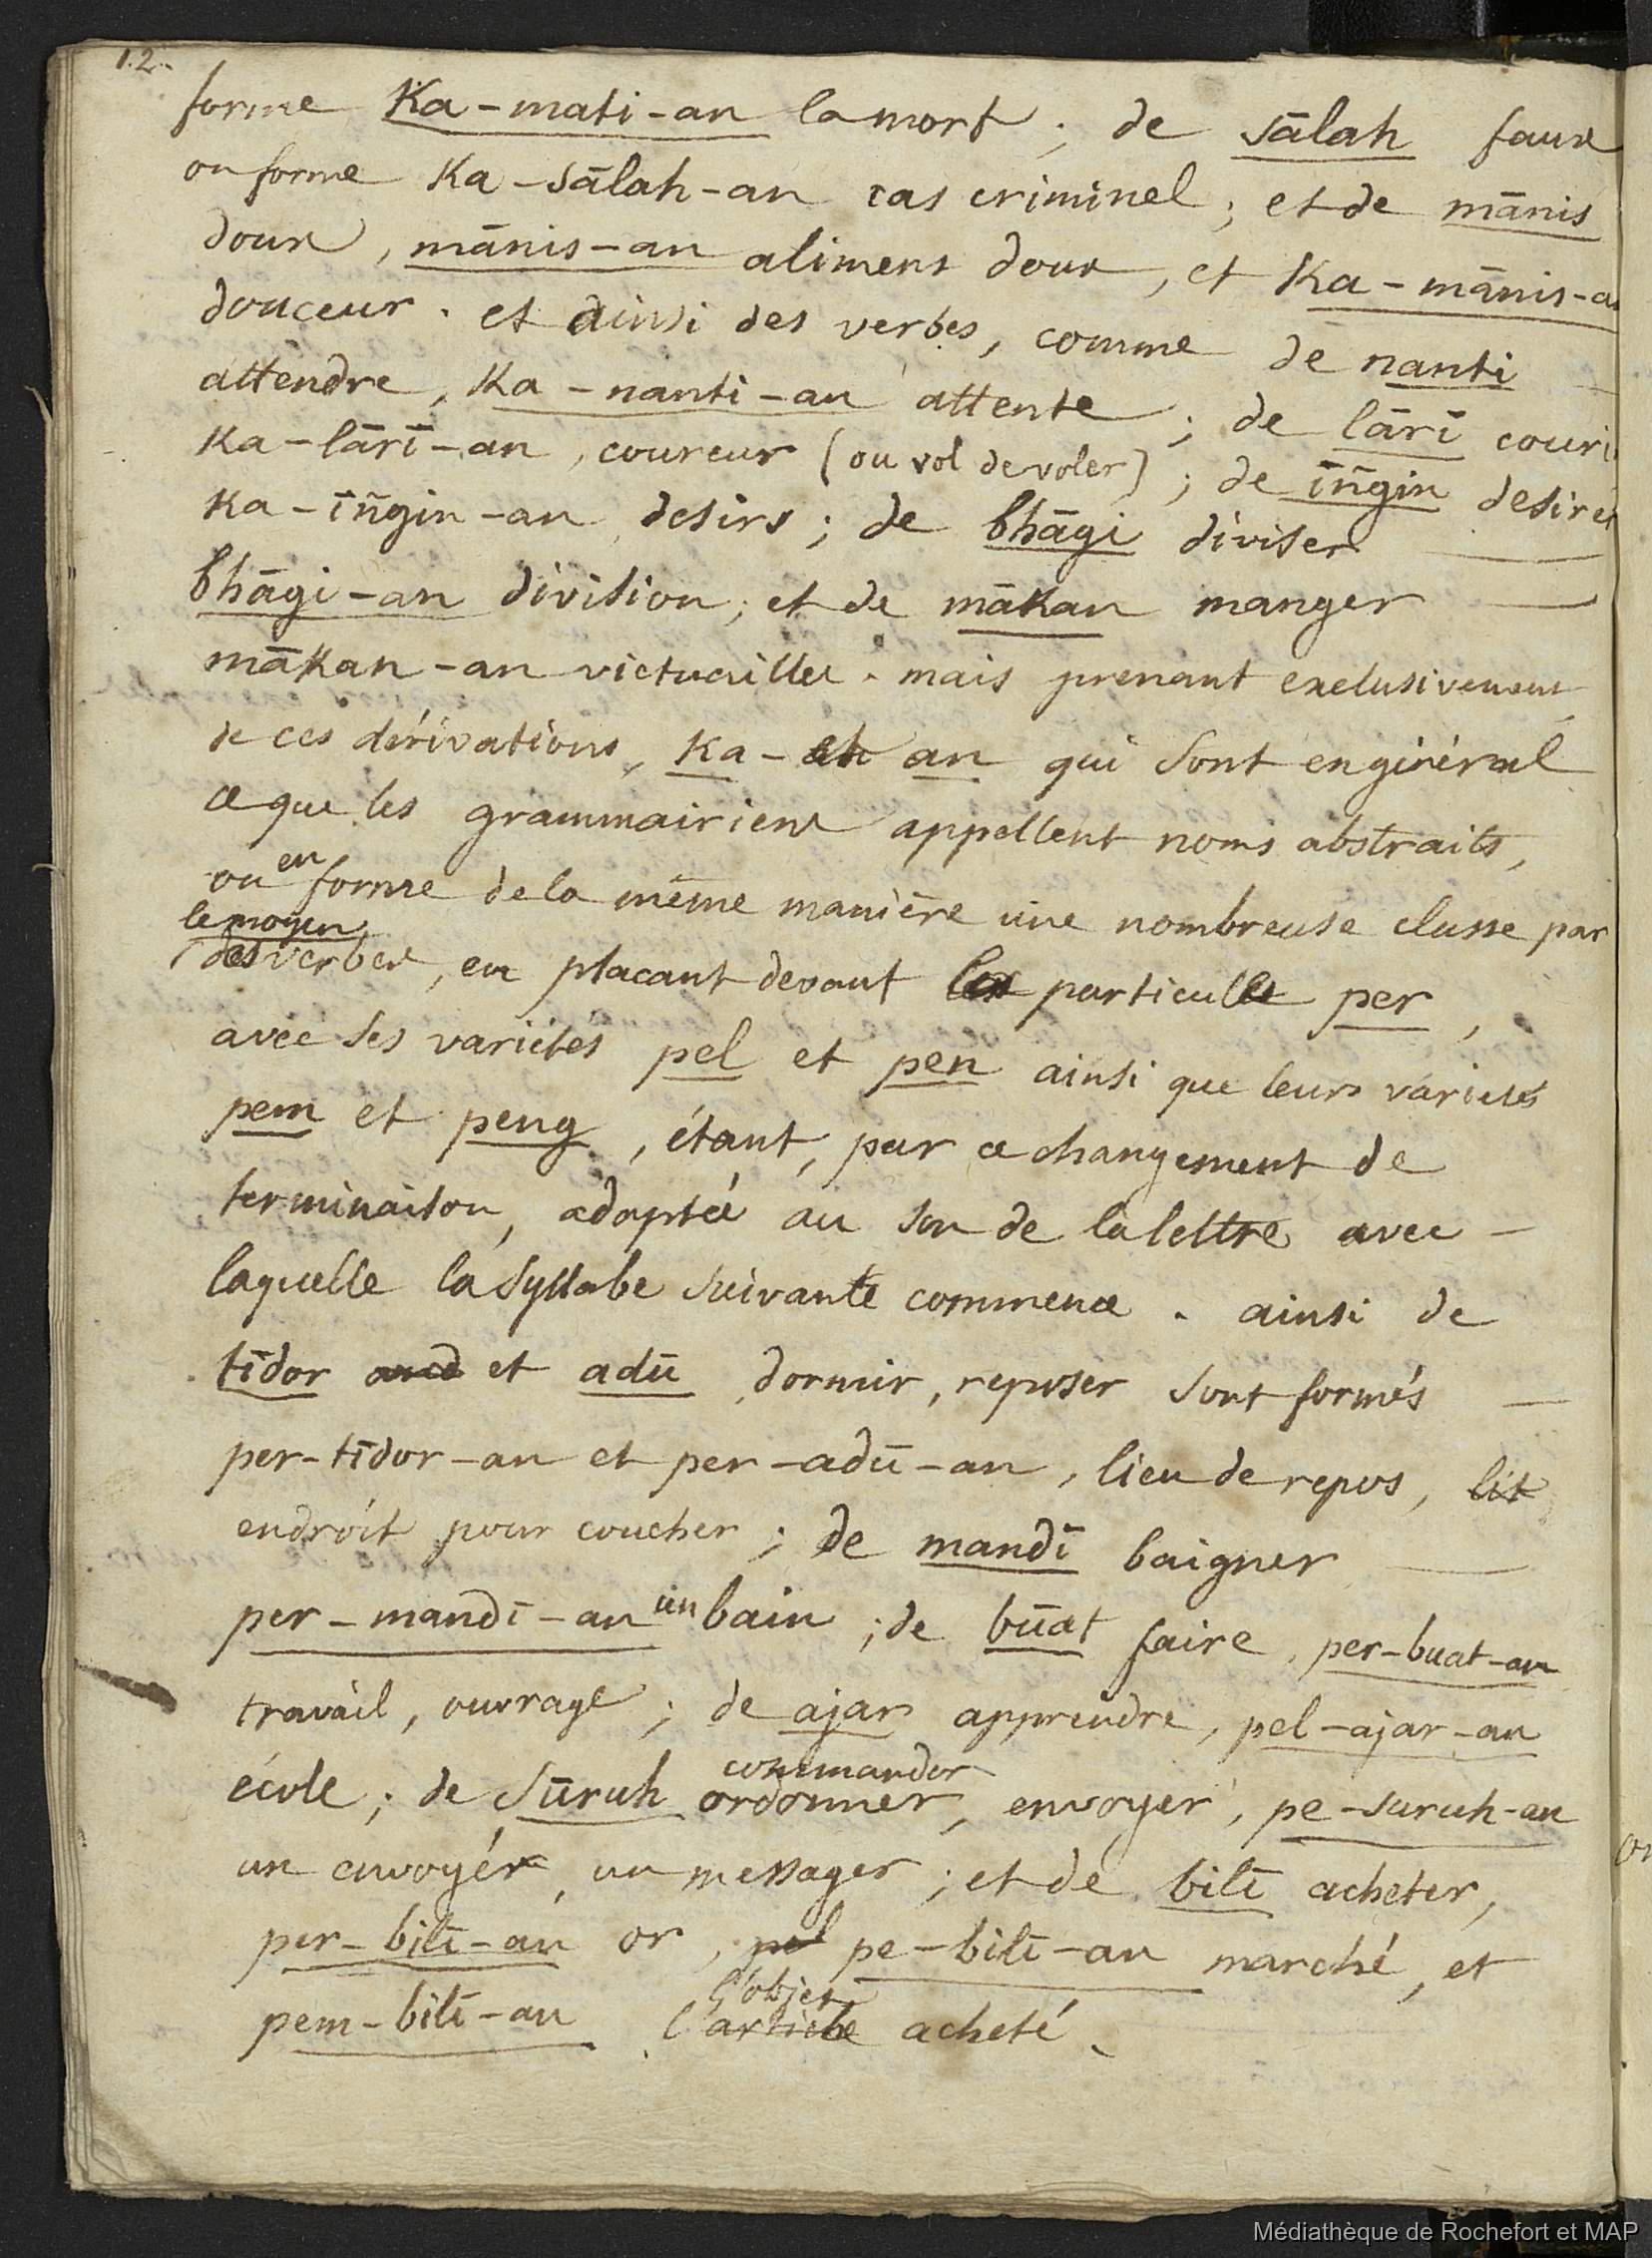 12.
forme Ka-mati-an la mort ; de sālah faux
on forme Ka-sālah-an cas criminel ; et de mānis
doux, mānis-an alimens doux, et Ka-mānis-an
douceur. et ainsi des verbes, comme de nanti
attendre, Ka-nanti-an attente ; de lārī courir
Ka-lārī-an, coureur (ou vol de voler) ; de īñgin desirer
Ka-īñgin-an desirs ; de bhāgi diviser
bhāgi-an division ; et de mākan manger
mākan-an victuailles. mais prenant exclusivement
de ces dérivations, Ka- an qui sont en général
ce que les grammairiens appellent noms abstraits,
on en forme de la même manière une nombreuse classe par
le moyen
des verbes, en placant devant les particules per,
avec ses variétés pel et pen ainsi que leurs variétés
pem et peng, étant, par ce changement de
terminaison, adapté au son de la lettre avec
laquelle la syllabe suivante commence. ainsi de
tīdor and et adū dormir, reposer sont formés
per-tīdor-an et per-adū-an, lieu de repos, lit
endroit pour coucher ; de mandī baigner
per-mandī-an un bain ; de būat faire, per-buat-an
travail, ouvrage ; de ajar apprendre, pel-ajar-an
commander
école ; de sūruh ordonner, envoyer, pe-suruh-an
un envoyér, un messager ; et de bilī acheter,
per-bilī-an or, pel pe-bilī-an marché, et
l'objet
pem-bilī-an l'article acheté.
Médiathèque de Rochefort et MAP